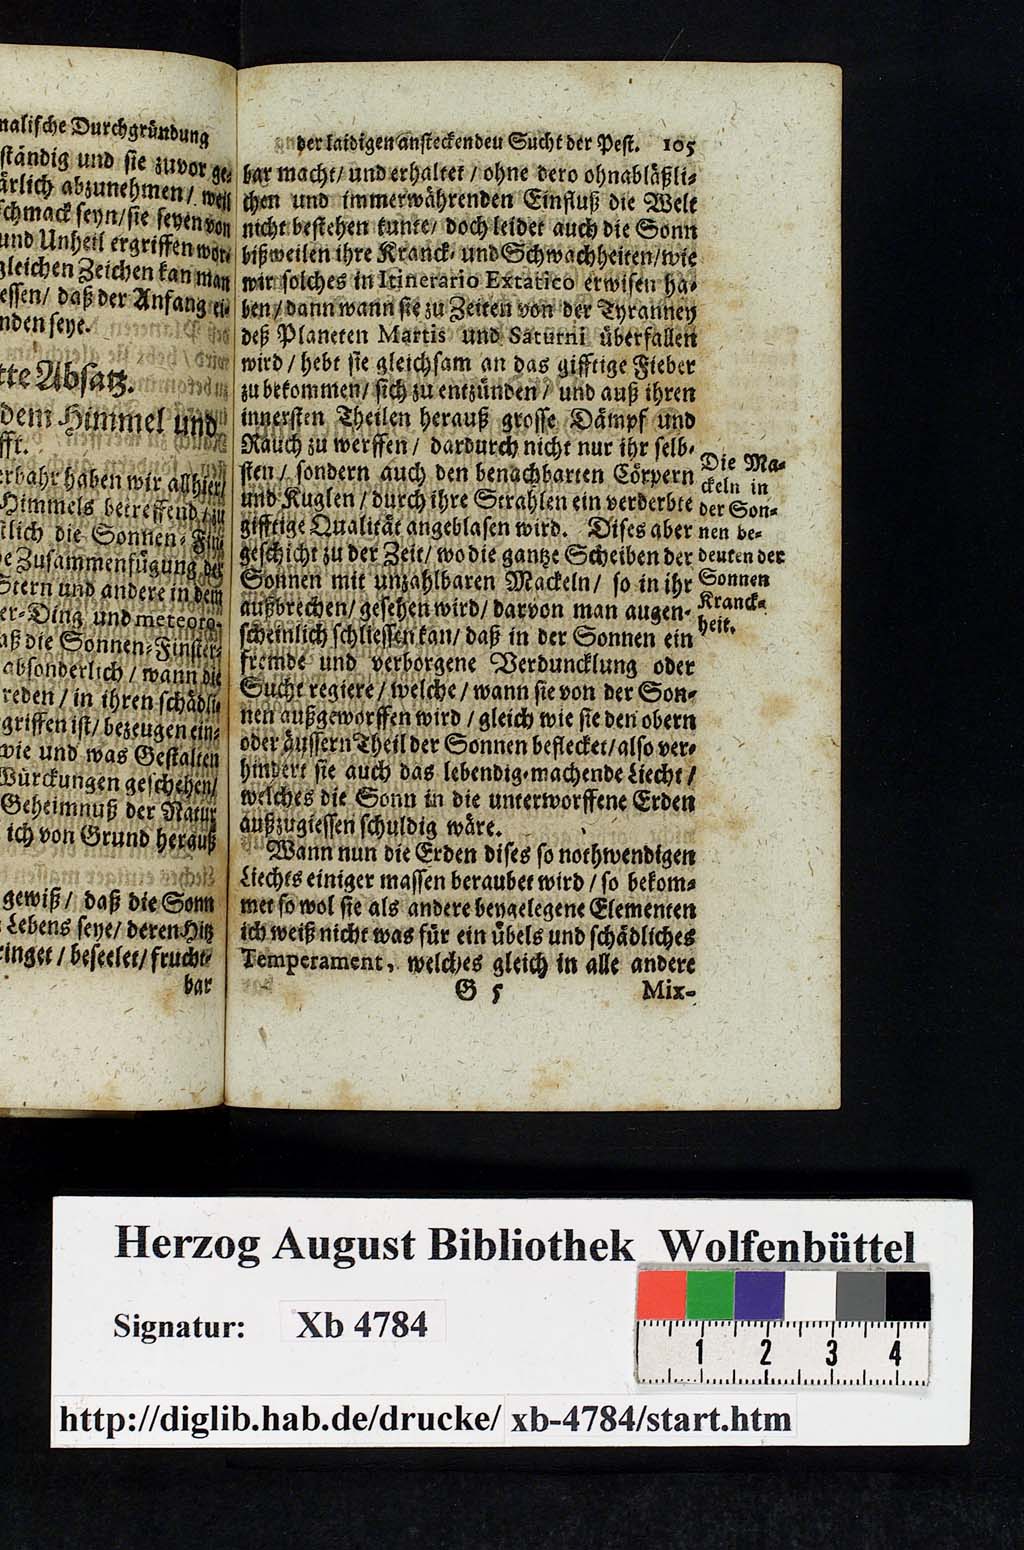 nalische Durchgründung
ständig und sie zuvor ge-
ärlich abzunehmen / weil
chmack seyn / sie seyen von
und Unheil ergriffen wor-
gleichen Zeichen kan man
essen / daß der Anfang ei-
nden seye.
tte Absatz.
dem Himmel und
fft.
erbahr haben wir allhier /
Himmels betreffend / zu
tlich die Sonnen-Fin-
e Zusammenfügung der
Stern und andere in dem
er-Ding und meteoro-
aß die Sonnen-Finster-
absonderlich / wann die
reden / in ihren schädli-
griffen ist / bezeugen ein-
wie und was Gestalten
Würckungen geschehen /
Geheimnuß der Natur
ich von Grund herauß
gewiß / daß die Sonn
Lebens seye / deren Hitz
ringet / beseelet / frucht-
bar
der laidigen ansteckenden Sucht der Pest. 105
bar macht / und erhaltet / ohne dero ohnabläßli-
chen und immerwährenden Einfluß die Welt
nicht bestehen kunte / doch leidet auch die Sonn
bißweilen ihre Kranck- und Schwachheiten / wie
wir solches in Itinerario Extatico erwisen ha-
ben / dann wann sie zu Zeiten von der Tyranney
deß Planeten Martis und Saturni überfallen
wird / hebt sie gleichsam an das gifftige Fieber
zu bekommen / sich zu entzünden / und auß ihren
innersten Theilen herauß grosse Dämpf und
Rauch zu werffen / dardurch nicht nur ihr selb-
sten / sondern auch den benachbarten Cörpern
und Kuglen / durch ihre Strahlen ein verderbte
gifftige Qualität angeblasen wird. Dises aber
geschicht zu der Zeit / wo die gantze Scheiben der
Sonnen mit unzahlbaren Mackeln / so in ihr
außbrechen / gesehen wird / darvon man augen-
scheinlich schliessen kan / daß in der Sonnen ein
fremde und verborgene Verduncklung oder
Sucht regiere / welche / wann sie von der Son-
nen außgeworffen wird / gleich wie sie den obern
oder äussern Theil der Sonnen beflecket / also ver-
hindert sie auch das lebendig-machende Liecht /
welches die Sonn in die unterworffene Erden
außzugiessen schuldig wäre.
Die Ma-
ckeln in
der Son-
nen be-
deuten der
Sonnen
Kranck-
heit.
Wann nun die Erden dises so nothwendigen
Liechts einiger massen beraubet wird / so bekom-
met so wol sie als andere beygelegene Elementen
ich weiß nicht was für ein übels und schädliches
Temperament, welches gleich in alle andere
G 5 Mix-
Herzog August Bibliothek Wolfenbüttel
Signatur: Xb 4784
1 2 3 4
http://diglib.hab.de/drucke/ xb-4784/start.htm